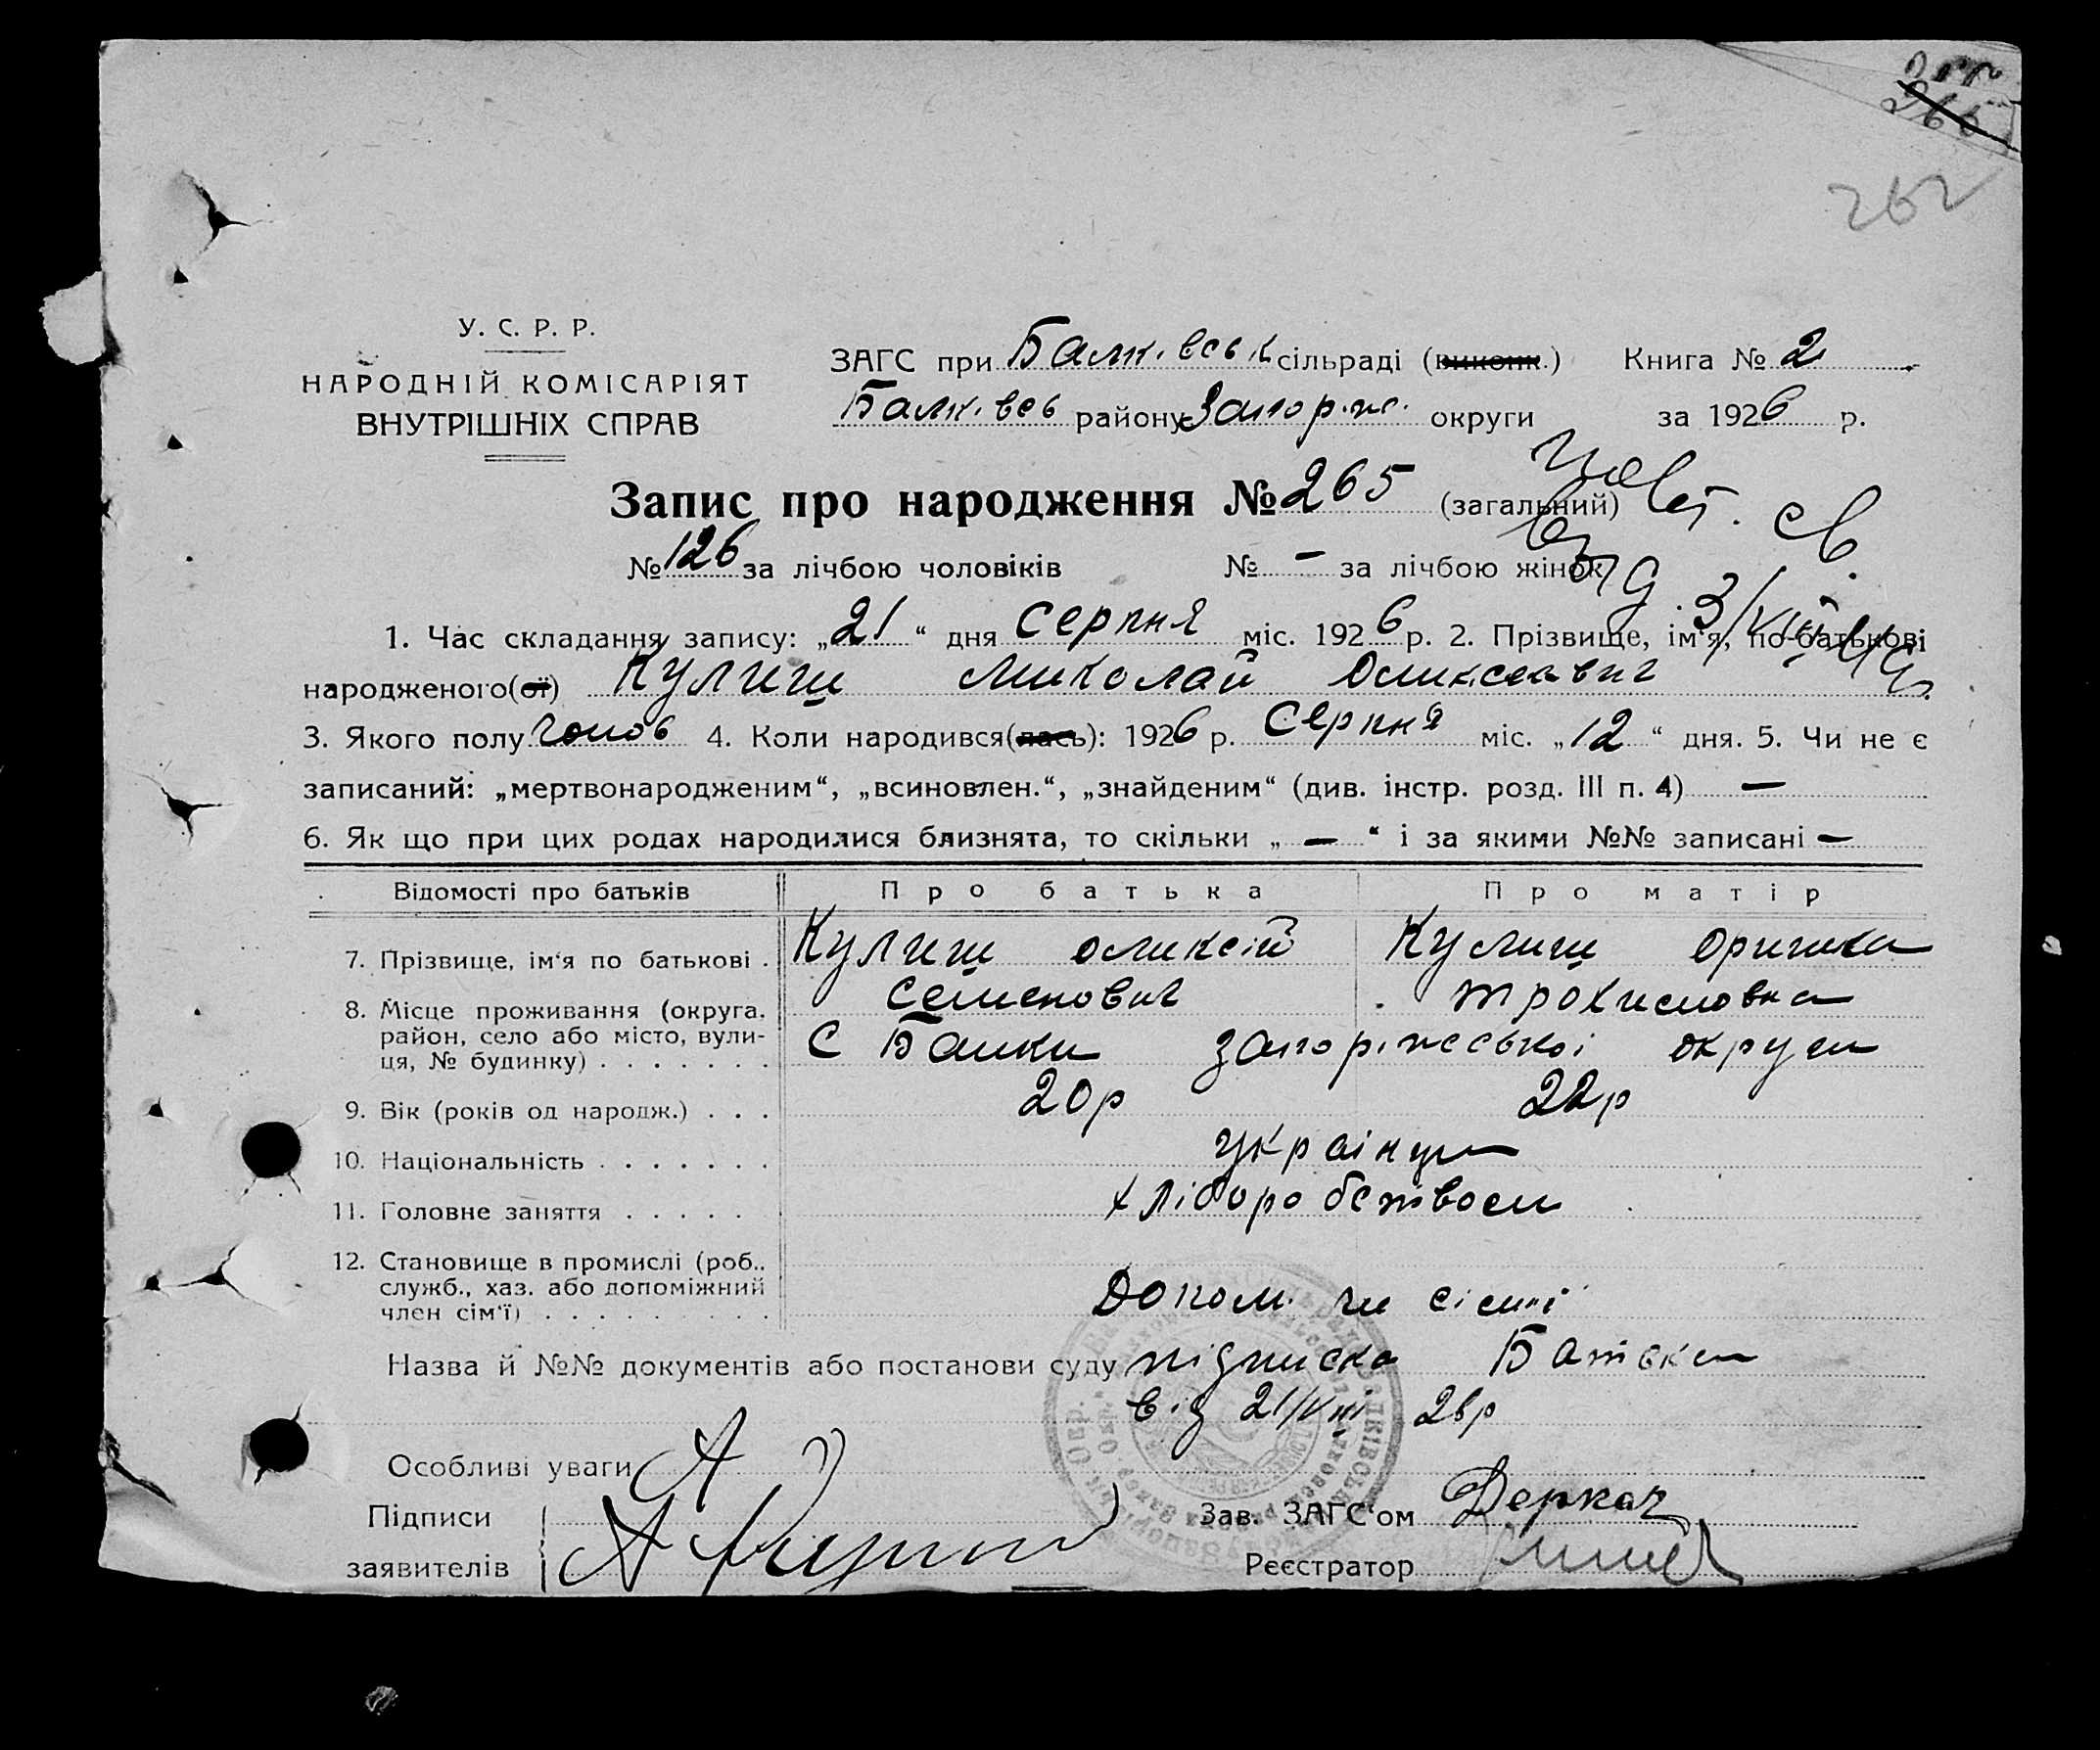 262
У. С. Р. Р.
НАРОДНІЙ КОМІСАРІЯТ
ВНУТРІШНІХ СПРАВ
ЗАГС при Балківськ сільраді (виконк.) Книга № 2
Балківсь району Запоріж. округи за 1926 р.
Запис про народження № 265 (загальний)
№ 126 за лічбою чоловіків № – за лічбою жінок
1. Час складання запису: „21“ дня серпня міс. 1926 р. 2. Прізвище, ім'я, по-батькові
народженого(ої) Кулиш Миколай Оликсеевич
3. Якого полу чолов 4. Коли народився(лась): 1926 р. Серпня міс. „12“ дня. 5. Чи не є
записаний: „мертвонародженим“, „всиновлен.“, „знайденим“ (див. інстр. розд. III п. 4) —
6. Як що при цих родах народилися близнята, то скільки „—“ і за якими №№ записані —
Відомості про батьків Про батька Про матір
7. Прізвище, ім'я по батькові . Кулиш Оликсій Кулиш Оришка
Семенович Трохимовна
8. Місце проживання (округа, район, село або місто, вулиця, № будинку) . . . . . . . С Балки Запоріжської округи
9. Вік (років од народж.) . . . 20р 22р
10. Національність . . . . . . . українци
11. Головне заняття . . . . . хліборобством
12. Становище в промислі (роб., служб., хаз. або допоміжний член сім'ї) . . . . . . . . . Допом. чл сімї
Назва й №№ документів або постанови суду підписка Батька
від 21/VIII 26р
Особливі уваги
Підписи
заявителів
Зав. ЗАГС'ом Деркач
Реєстратор